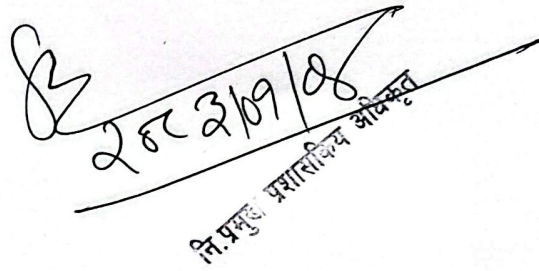 २०८३|०१|०४
नि.प्रमुख प्रशासकिय अधिकृत